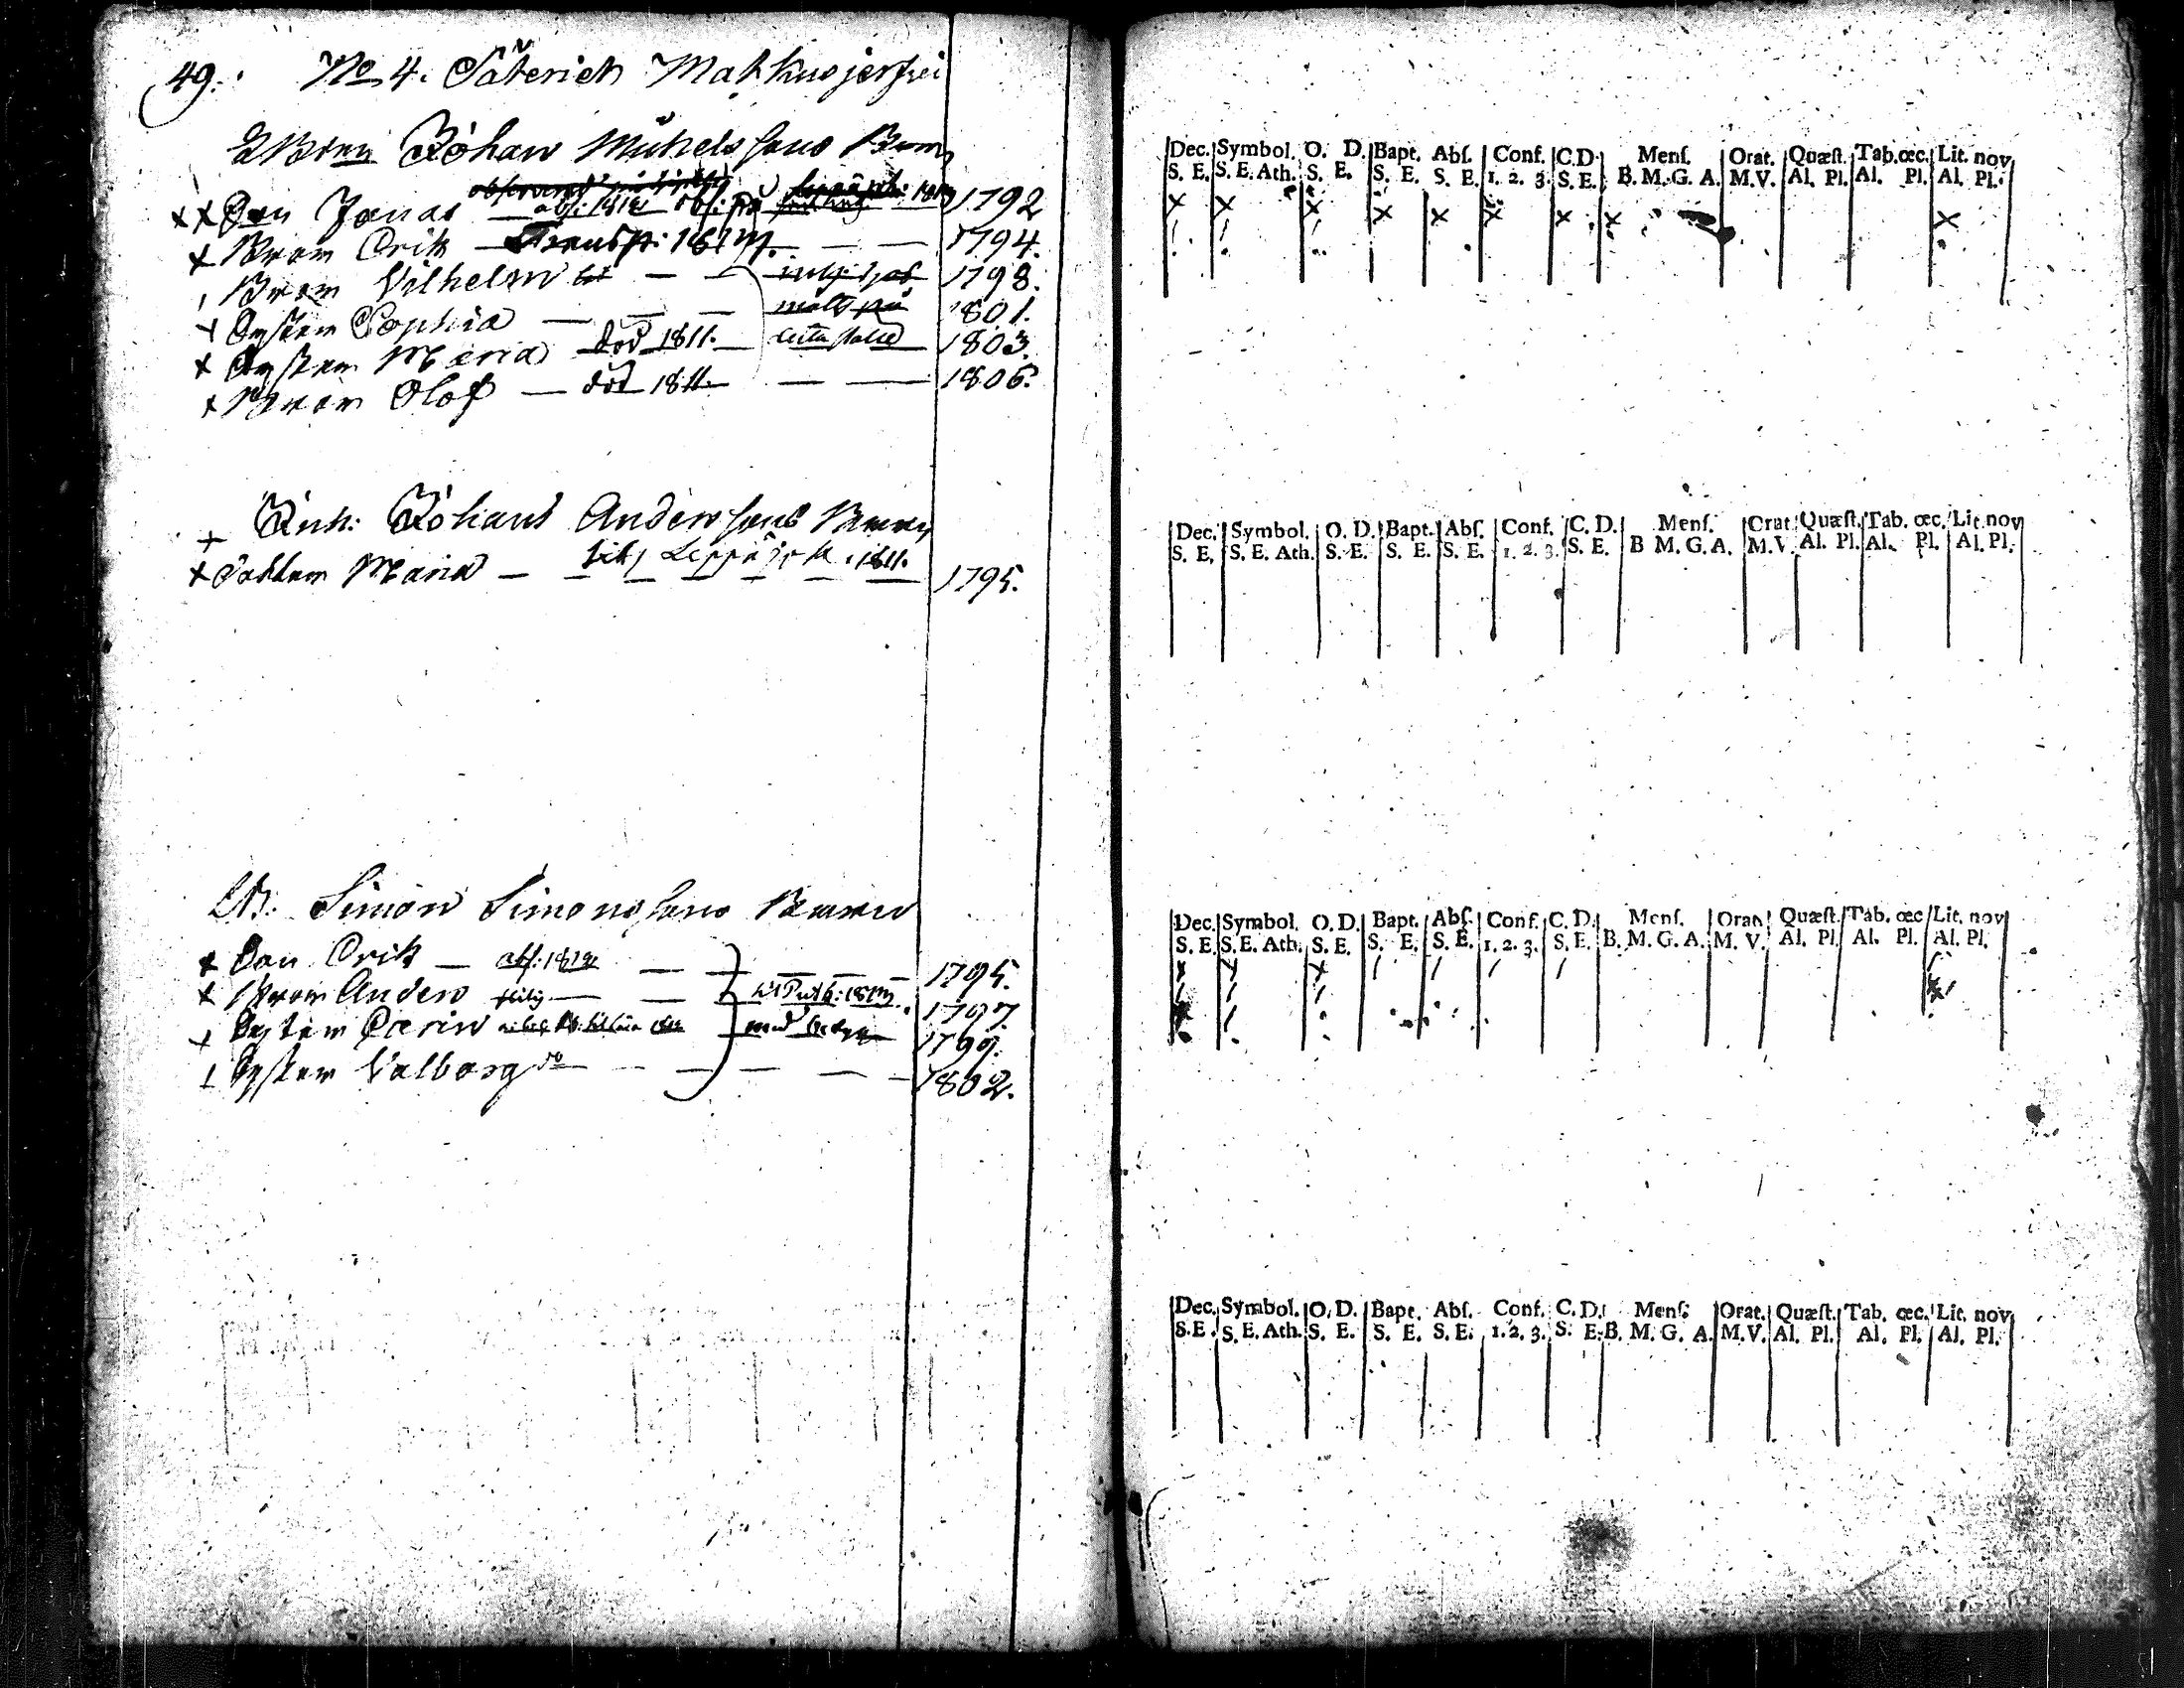 49. No 4. Säterich Matkusjerfwi
Johan Michelssons Barn
Son Jonas abs: 1812 1792
Broren Erik Transp: 1817. 1794.
Broren Vilhelm 1798.
Systern Sophia 1801.
Systern Maria död 1811. 1803.
Broren Olof död 1811. 1806.
Johans Anderssons Barn
Dottren Maria Leppäjerk. 1811. 1795.
Simon Simonssons Barn
Son Erik abs: 1812 1795.
Broren Anders 1797
Systern Carin 1799.
Systern Valborg do 1802.
Dec. Symbol. O. D. Bapt. Abſ. Conf. C.D. Menſ. Orat. Quæſt. Tab.œc. Lit. nov
S. E. S. E. Ath. S. E. S. E. S. E. 1. 2. 3. S. E. B. M. G. A. M.V. Al. Pl. Al. Pl. Al. Pl.
Dec. Symbol. O. D. Bapt. Abſ. Conf. C. D. Menſ. Orat. Quæſt. Tab. œc. Lit. nov
S. E. S. E. Ath. S. E. S. E. S. E. 1. 2. 3. S. E. B M. G. A. M.V. Al. Pl. Al. Pl. Al. Pl.
Dec. Symbol. O. D. Bapt. Abſ. Conf. C. D. Menſ. Orat. Quæſt. Tab. œc Lit. nov
S. E. S. E. Ath. S. E. S. E. S. E. 1. 2. 3. S. E. B. M. G. A. M. V. Al. Pl. Al. Pl. Al. Pl.
Dec. Symbol. O. D. Bapt. Abſ. Conf. C. D. Menſ. Orat. Quæſt. Tab. œc. Lit. nov
S. E. S. E. Ath. S. E. S. E. S. E. 1. 2. 3. S. E. B. M. G. A. M.V. Al. Pl. Al. Pl. Al. Pl.